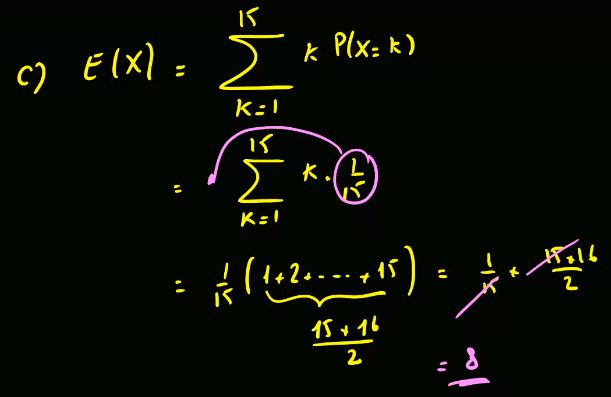 c) E(X) = \sum_{k=1}^{15} k P(X=k)
= \sum_{k=1}^{15} k \cdot \frac{1}{15}
= \frac{1}{15} ( \underbrace{1+2+\cdots+15}_{\frac{15*16}{2}} ) = \frac{1}{15} * \frac{15*16}{2}
= 8